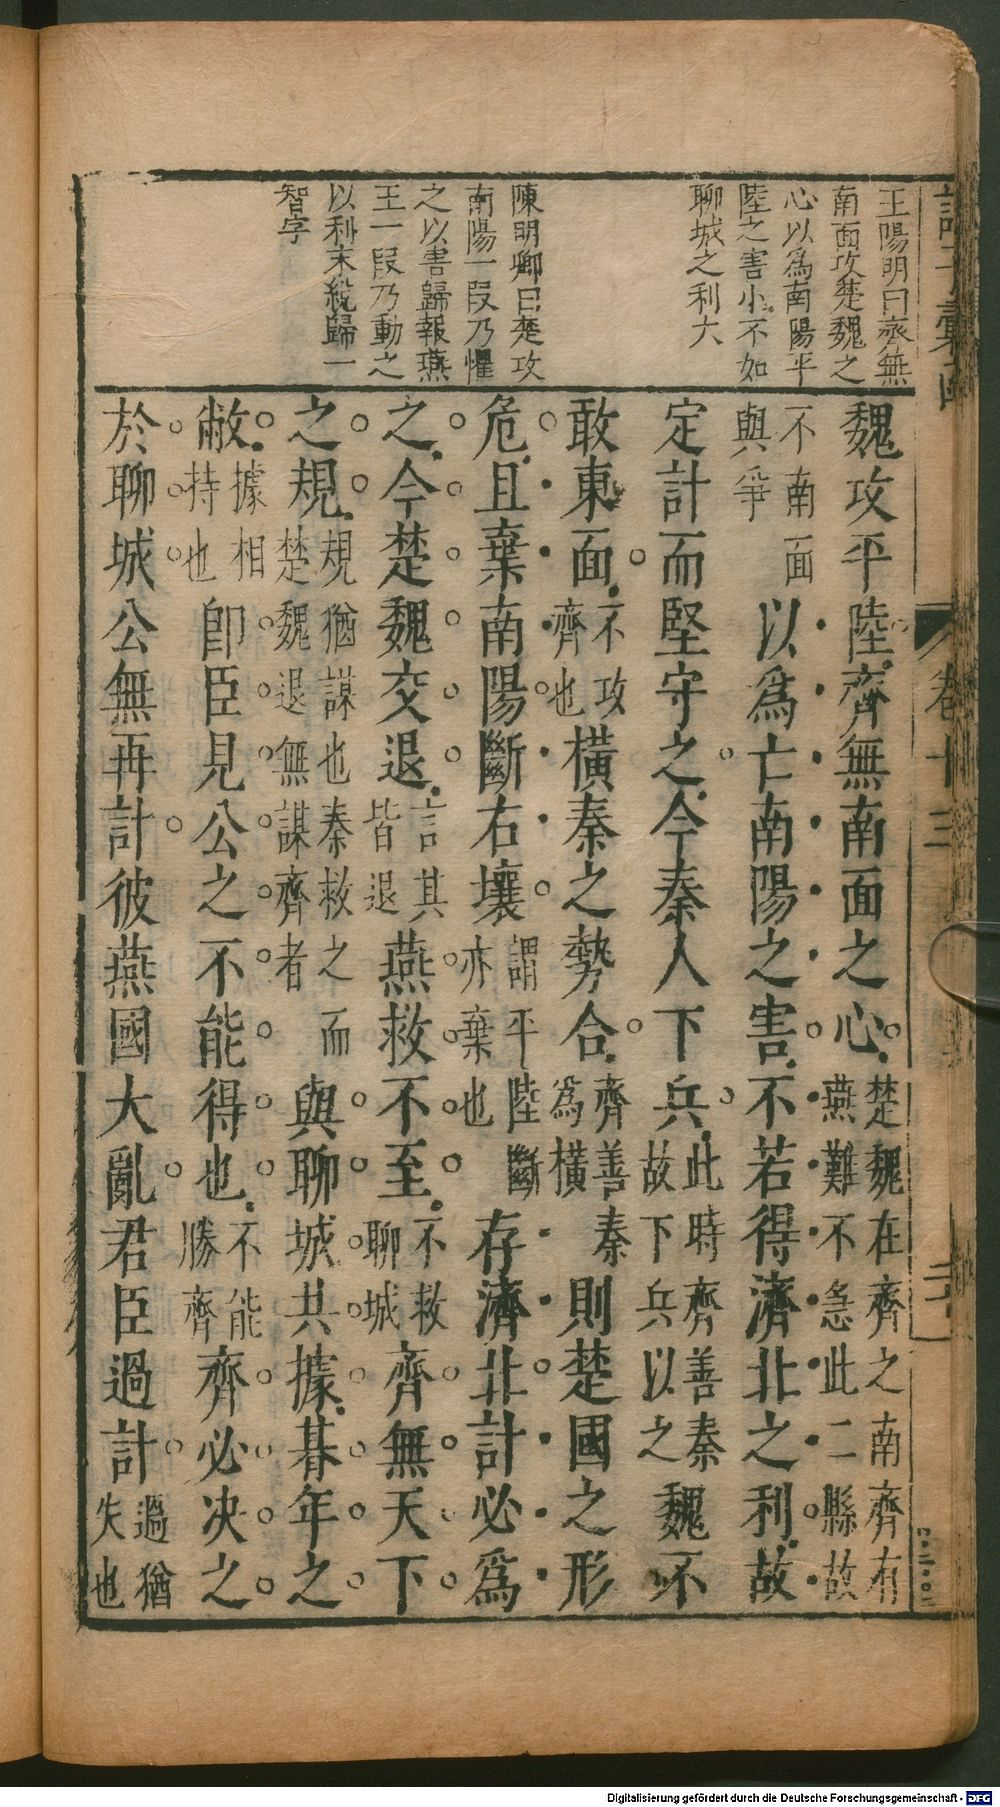 王陽明曰齊無
南面攻楚魏之
心以為南陽平
陸之害小不如
聊城之利大
陳明卿曰楚攻
南陽一段乃懼
之以害歸報燕
王一段乃動之
以利末綂歸一
智字
魏攻平陸齊無南面之心楚魏在齊之南齊有燕難不急此二縣故
不南面與爭以為亡南陽之害不若得濟北之利故
定計而堅守之今秦人下兵此時齊善秦故下兵以之魏不
敢東面不攻齊也橫秦之勢合齊善秦為橫則楚國之形
危且棄南陽斷右壤謂平陸斷亦棄也存濟北計必為
之今楚魏交退言其皆退燕救不至不救聊城齊無天下
之規規猶謀也秦救之而楚魏退無謀齊者與聊城共據暮年之
敝據相持也卽臣見公之不能得也不能勝齊齊必决之
於聊城公無再計彼燕國大亂君臣過計過猶失也
卷十三
Digitalisierung gefördert durch die Deutsche Forschungsgemeinschaft - DFG